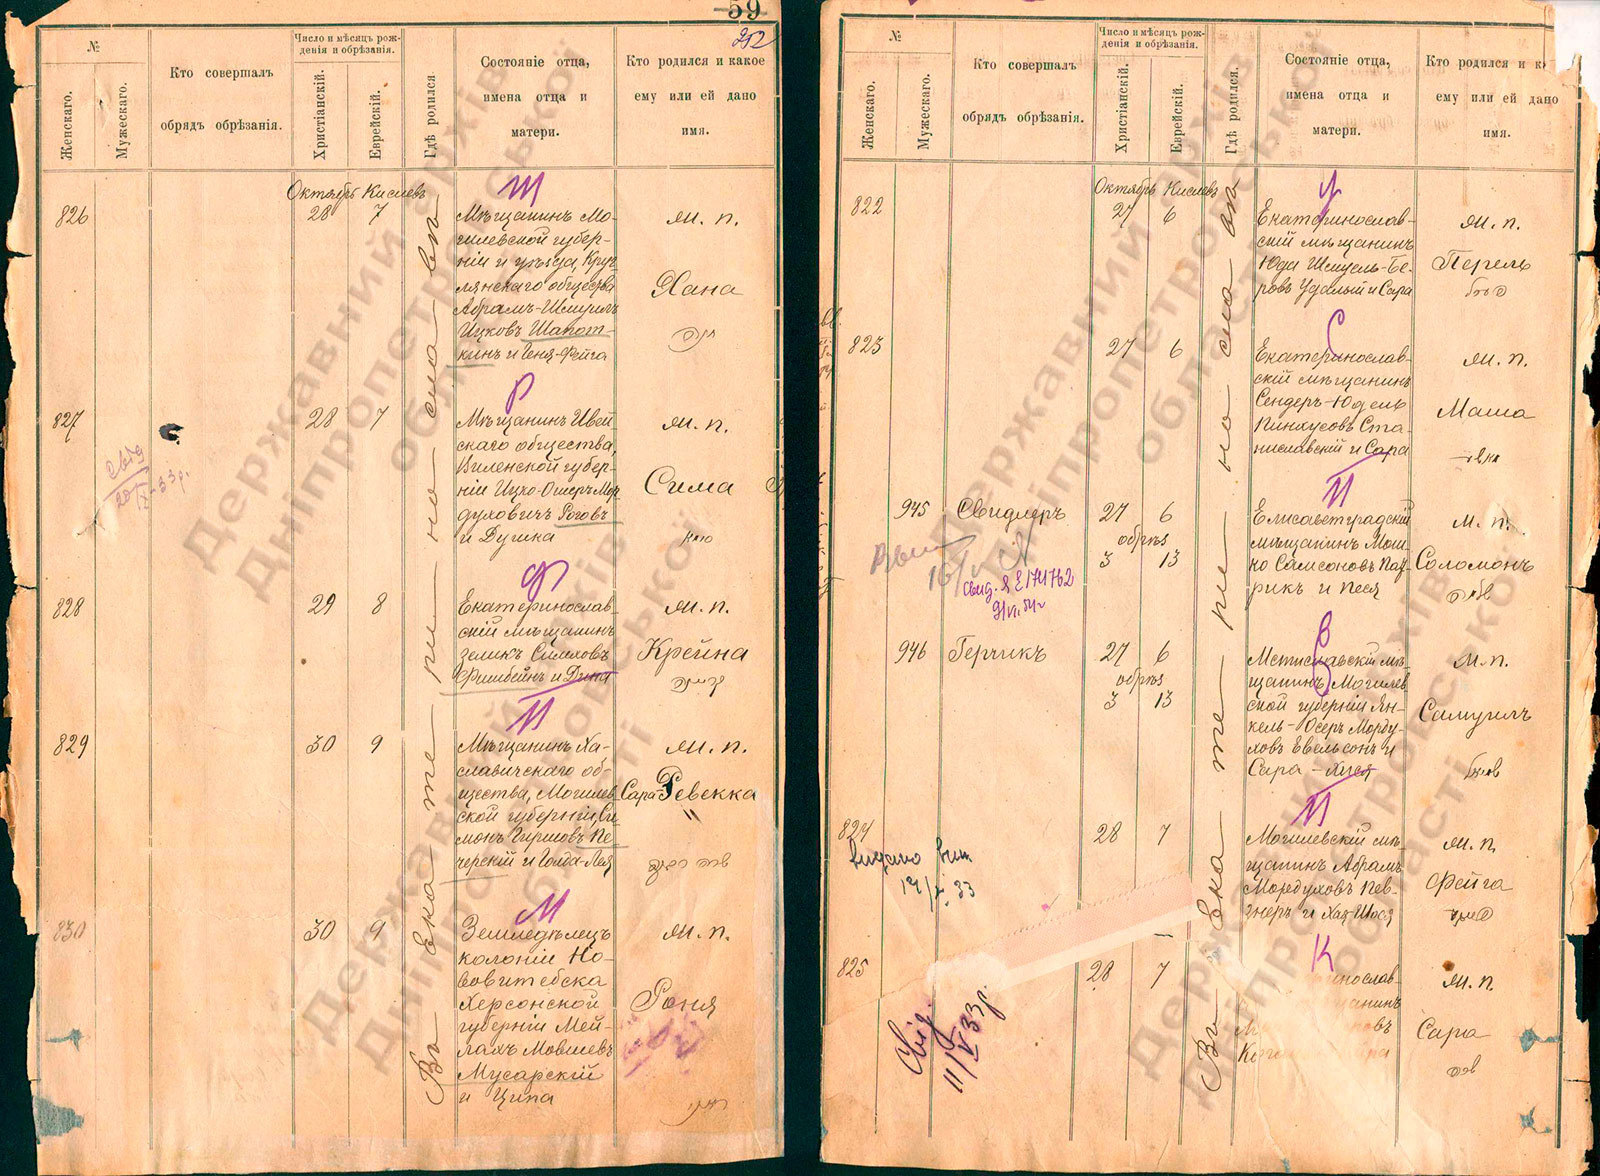 59
252
№
Женскаго.
Мужескаго.
Кто совершалъ
обрядъ обрѣзанія.
Число и мѣсяцъ рож-
денія и обрѣзанія.
Христіанскій.
Еврейскій.
Гдѣ родился.
Состояніе отца,
имена отца и
матери.
Кто родился и какое
ему или ей дано
имя.
Октябрь Кислевъ
Въ Екатеринославѣ
826
28 7
Мѣщанинъ Мо-
гилевской губер-
ніи и уѣзда, Круг-
лянскаго общества
Абрамъ-Шмуилъ
Ицковъ Шапот-
кинъ и Геня-Фейга
м. п.
Хана
827
28 7
Р
Мѣщанинъ Ивей-
скаго общества,
Виленской губер-
ніи Ицхо-Ошеръ Мор-
духовичъ Роговъ
и Душка
м. п.
Сима
828
29 8
Ф
Екатеринослав-
скій мѣщанинъ
Зеликъ Симховъ
Фишбейнъ и Дина
м. п.
Крейна
829
30 9
П
Мѣщанинъ Ха-
славичскаго об-
щества, Могилев-
ской губерніи, Си-
монъ Гиршовъ Пе-
черскій и Голда-Лея
м. п.
Сара Ревекка
830
30 9
М
Земледѣлецъ
колоніи Но-
вовитебска
Херсонской
губерніи Мей-
лахъ Мовшевъ
Мусарскій
и Ципа
м. п.
Роня
№
Женскаго.
Мужескаго.
Кто совершалъ
обрядъ обрѣзанія.
Число и мѣсяцъ рож-
денія и обрѣзанія.
Христіанскій.
Еврейскій.
Гдѣ родился.
Состояніе отца,
имена отца и
матери.
Кто родился и к
ему или ей дано
имя.
Октябрь Кислевъ
Въ Екатеринославѣ
822
27 6
Екатеринослав-
скій мѣщанинъ
Юда Шмуель-Бе-
ровъ Удалый и Сара
м. п.
Перель
823
27 6
С
Екатеринослав-
скій мѣщанинъ
Сендеръ-Юдель
Пинхусовъ Ста-
ниславскій и Сара
м. п.
Маша
945
Свидлеръ
27 6
обрѣз
3 13
П
Елисаветградскій
мѣщанинъ Мош-
ко Самсоновъ Пау-
рикъ и Песя
м. п.
Соломонъ
946
Герчикъ
27 6
обрѣз
3 13
Мстиславскій мѣ-
щанинъ Могилев-
ской губерніи Ян-
кель-Осеръ Морду-
ховъ Евельсонъ и
Сара-Хися
м. п.
Самуилъ
824
видано вип
28 7
П
Могилевскій мѣ-
щанинъ Абрамъ
Мордуховъ Пев-
знеръ и Хая-Шося
м. п.
Фейга
825
Свід.
11/V 33 р.
28 7
К
нослав-
щанинъ
м. п.
Сара
Державний архів
Дніпропетровської
області
Державний архів
Дніпропетровської
області
Державний архів
Дніпропетровської
області
Державний архів
Дніпропетровської
області